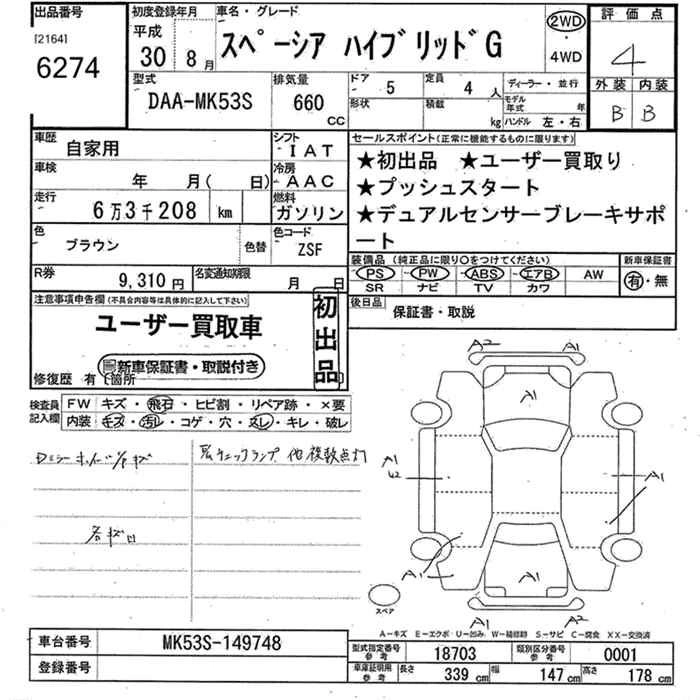 出品番号
[2164]
6274
初度登録年月
平成
30 8月
車名・グレード
スペーシア ハイブリッドG
2WD
・
4WD
評価点
4
外装 内装
B B
型式
DAA-MK53S
排気量
660
CC
ドア 5
形状
定員 4 人
積載 kg
ディーラー・並行
モデル年式 年
ハンドル 左・右
車歴
自家用
シフト
IAT
車検 年 月( 日)
冷房
AAC
走行
6万3千208 km
燃料
ガソリン
色
ブラウン
色替
色コード
ZSF
R券
9,310円
名変通知期限
月 日
セールスポイント(正常に機能するものに限ります)
★初出品 ★ユーザー買取り
★プッシュスタート
★デュアルセンサーブレーキサポ
ート
装備品 (純正品に限り○をつけてください)
新車保証書
PS PW ABS エアB AW
SR ナビ TV カワ
有・無
後日品
保証書・取説
注意事項申告欄(不具合内容等は具体的に記入して下さい)
ユーザー買取車
初出品
新車保証書・取説付き
修復歴 有 (箇所
検査員記入欄
FW キズ・飛石・ヒビ割・リペア跡・×要
内装 キズ・汚レ・コゲ・穴・スレ・キレ・破レ
キズ
ランプ 他複数点灯
各キズ凹
A2 A1
A1
A1
U2
A1
A1
A1
A1 A2
スペア
A-キズ E-エクボ U-凹み W-補修跡 S-サビ C-腐食 XX-交換済
車台番号
MK53S-149748
登録番号
型式指定番号
参考
18703
類別区分番号
参考
0001
車庫証明用
参考
長さ 339 cm 幅 147 cm 高さ 178 cm